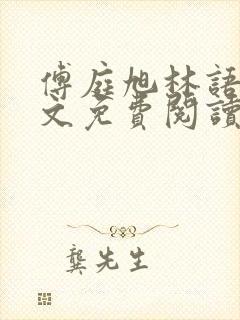 傅庭旭林語
文免費閱讀
龔先生